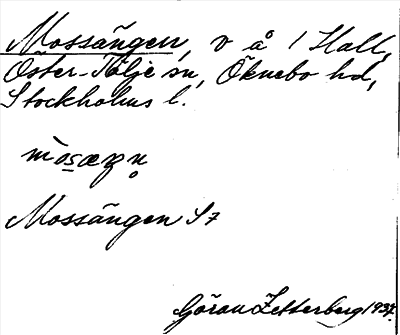 Mossängen, v å 1 Hall,
Öster-Tälje sn, Öknebo hd,
Stockholms l.
Mossängen S7
Göran Zetterberg 1937.